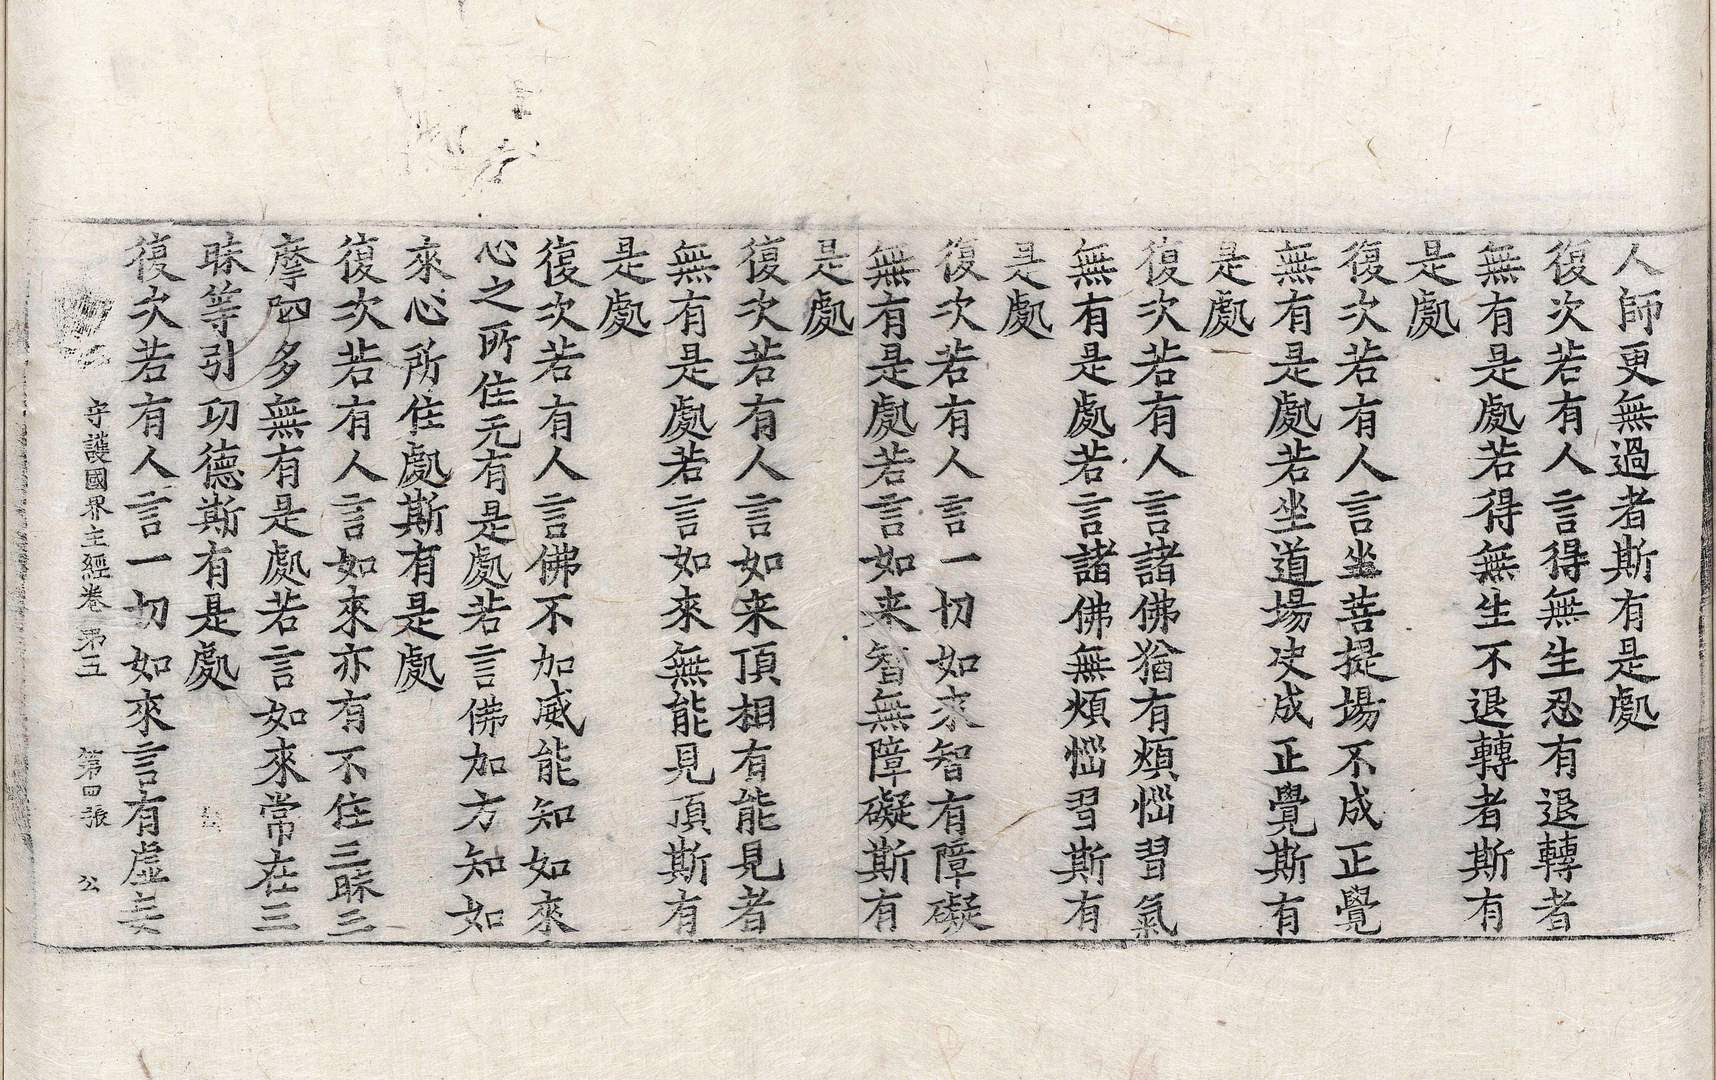 人師更無過者斯有是處
復次若有人言得無生忍有退轉者
無有是處若得無生不退轉者斯有
是處
復次若有人言坐菩提場不成正覺
無有是處若坐道場决成正覺斯有
是處
復次若有人言諸佛猶有煩惱習氣
無有是處若言諸佛無煩惱習斯有
是處
復次若有人言一切如來智有障礙
無有是處若言如来智無障礙斯有
是處
復次若有人言如来頂相有能見者
無有是處若言如來無能見頂斯有
是處
復次若有人言佛不加威能知如來
心之所住无有是處若言佛加方知如
來心所住處斯有是處
復次若有人言如來亦有不住三昧三
摩呬多無有是處若言如來常在三
昧等引功德斯有是處
復次若有人言一切如來言有虛妄
守護國界主經卷第五 第四張 公